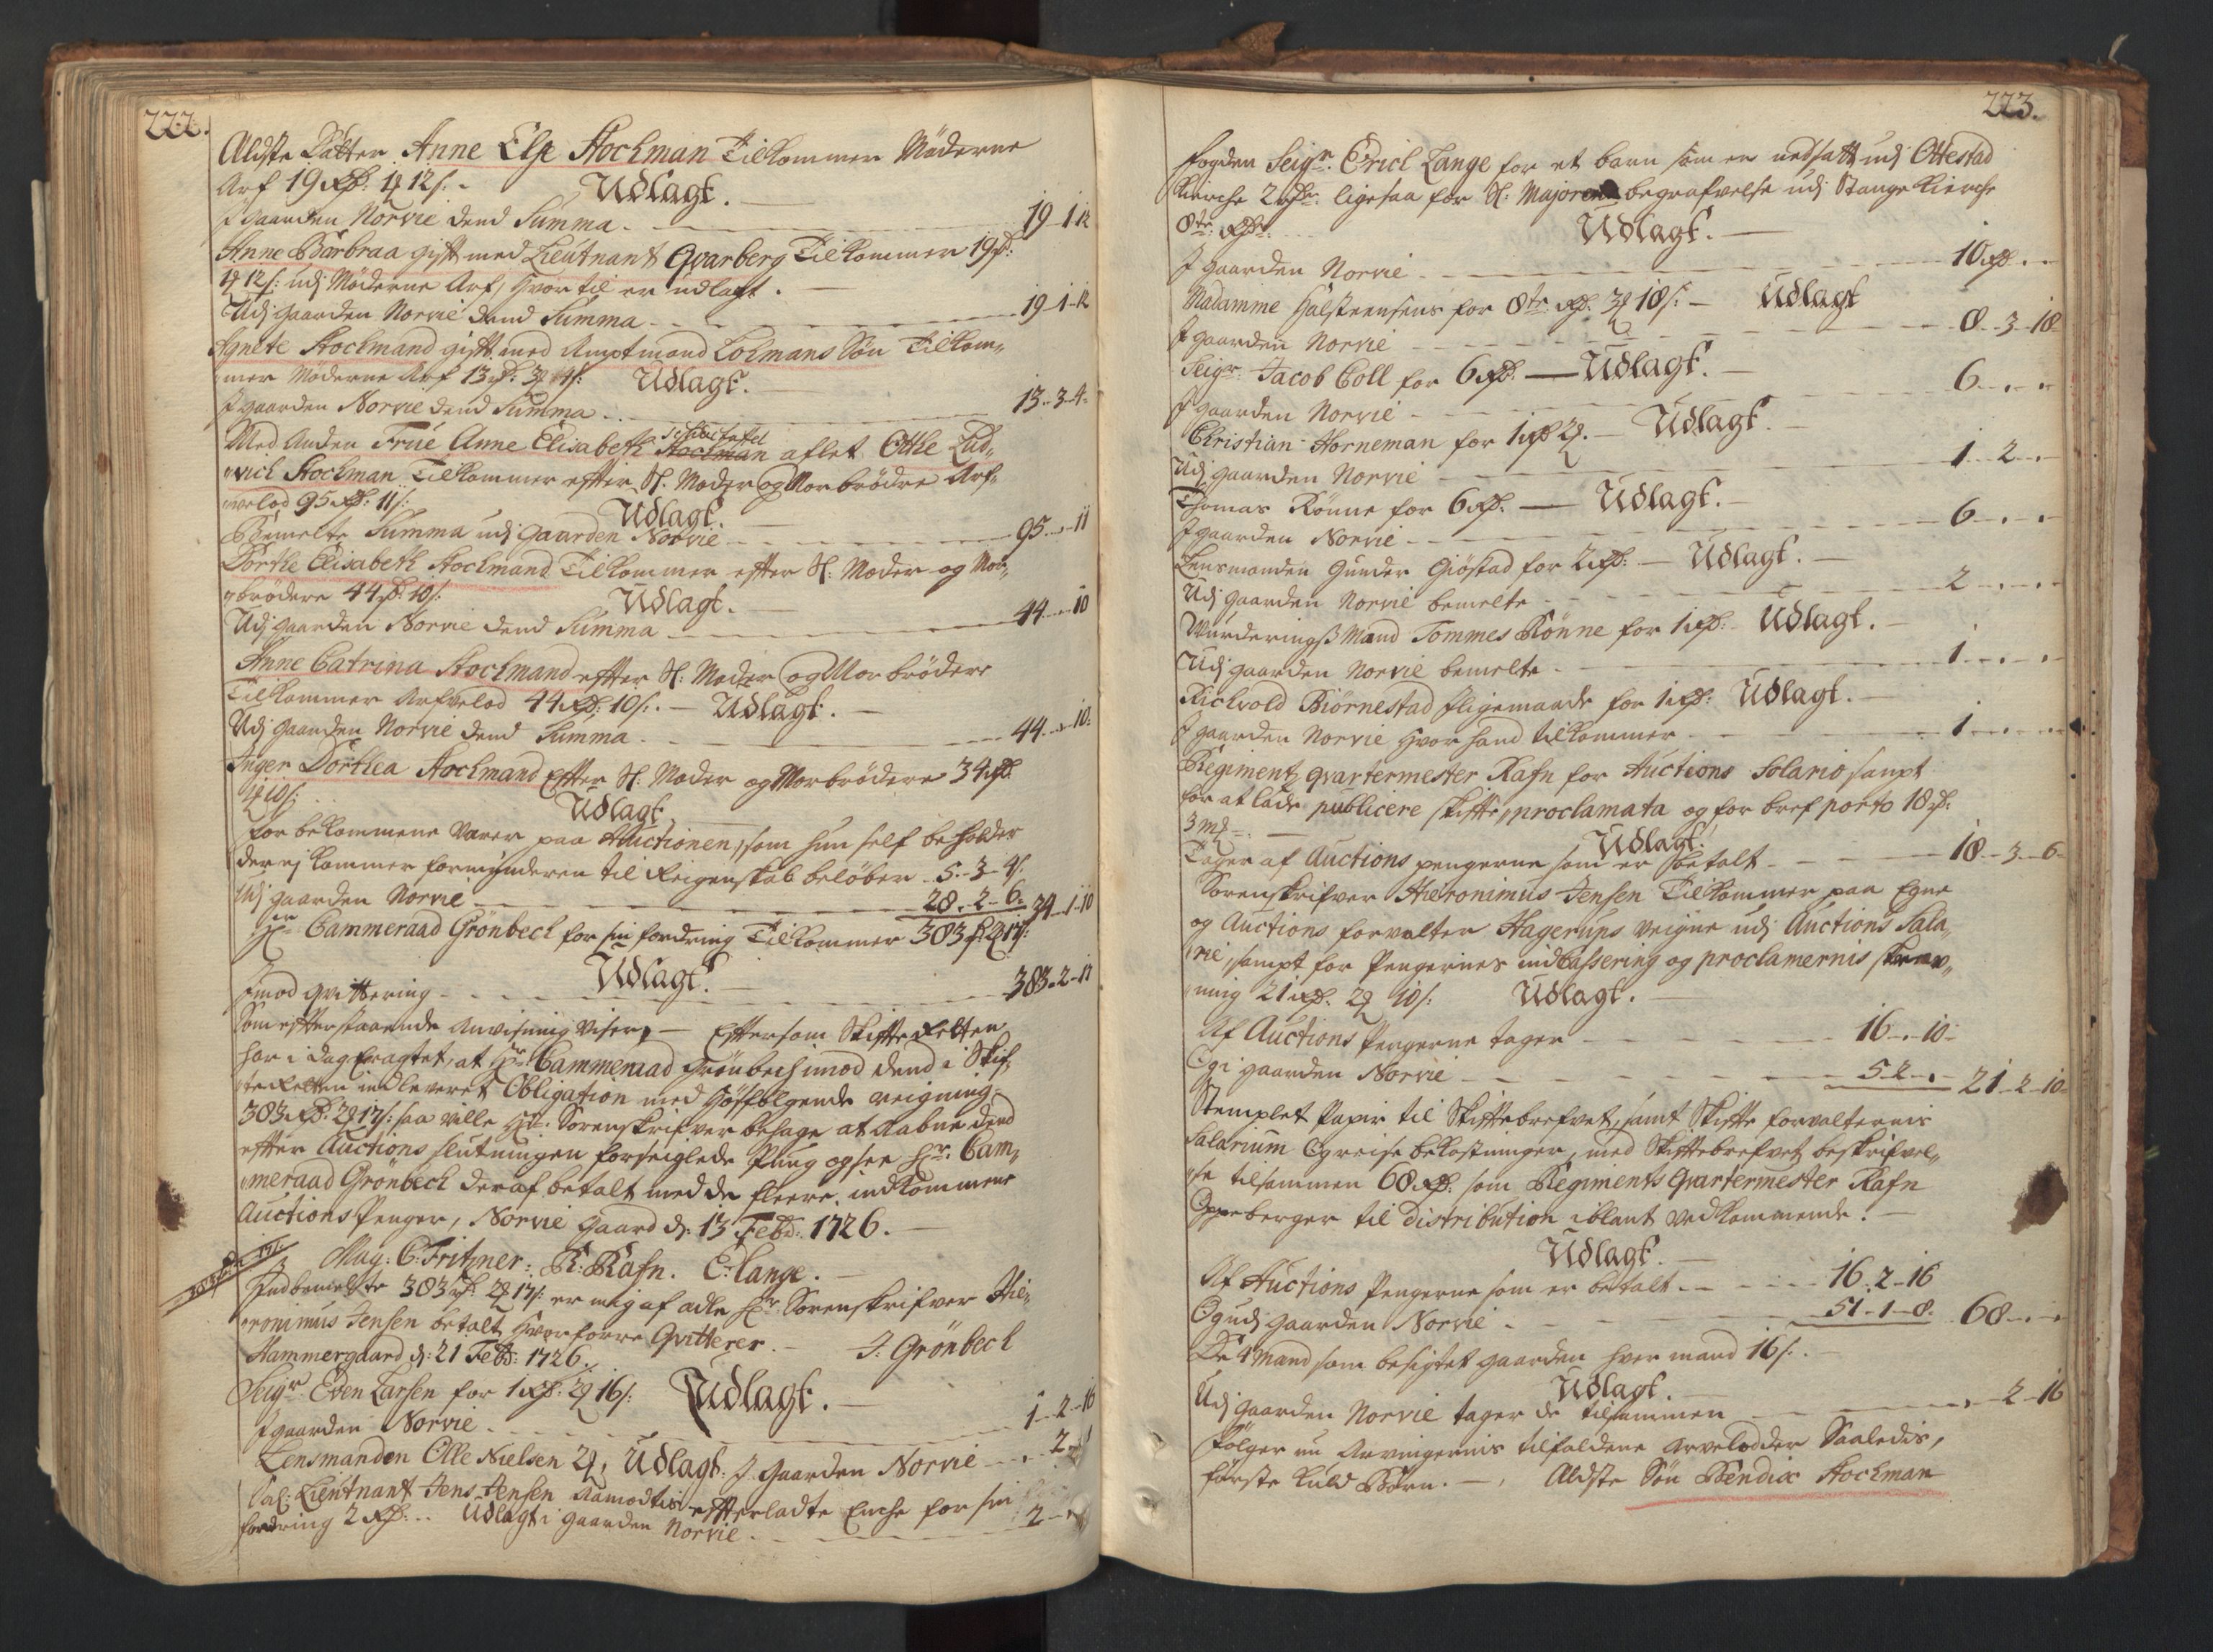 222.
Aldste Datter Anne Else Stockman Tilkommer Mødrene
Arf 19 Rd: 1 12 s: - Udlagt.
I gaarden Norvie dend Summa - 19-1-12
Anne Barbraa gift med Lieutnant Qvarberg Tilkommer 19 rd:
1 12 s: udj Mødrene Arf, hvortil er udlagt.
Udj gaarden Norvie dend Summa - 19-1-12
Agnete Stockmand gift med Amptmand Lohmans Søn Tilkom„
„mer Mødrene Arf 13 rd: 3 4 s: Udlagt.
I gaarden Norvie dend Summa - 13-3-4-
Med Anden Frue Anne Elisabeth Stockman aflet Othe Lud„
„vich Stockman Tilkommer effter Sl. Moder og Morbrødre Arf„
„velod 95 Rd: 11 s:
Udlagt.
Bemelte Summa udj gaarden Norvie - 95-„-11
Dorthe Elisabeth Stockmand Tilkommer effter Sl: Moder og Mor„
„brødere 44 rd: 10 s:
Udlagt.
Udj gaarden Norvie dend Summa - 44-„-10
Anne Catrina Stockmand effter Sl: Moder og Morbrødere
Tilkommer Arfvelod 44 Rd: 10 s: - Udlagt. -
Udj gaarden Norvie dend Summa - 44-„-10:
Inger Dorthea Stockmand Effter Sl. Moder og Morbrødere 34 rd.
1 10 s: Udlagt
for bekommene Varer paa Auctionen, som hun self beholder
der ej kommer formynderen til Reigenskab beløber 5-3-4 s.
Udj gaarden Norvie - 28-2-6- 34-1-10
Hr Cammeraad Grønbech for sin fordring Tilkommer 383 rd 2 17 s:
Udlagt.
Imod qvittering - 383-2-17
Som effterstaaende Anvisning Viser, - Effter som Skiffte Retten
har i dag eragtet, at Hr: Cammeraad Grønbech imod dend i Skif„
„te Retten indleveret Obligation med hosfølgende reigning
383 Rd: 2 17 s: saa ville Hr: Sorenskrifver behage at Aabne dend
effter Auctions slutningen forseiglede Pung og see Hr: Cam„
„meraad Grønbech deraf betalt med de fleere indkommene
Auctions Penger, Norvie gaard d: 13 Febr: 1726. -
Mag: C: Fritzner: R: Rafn. E: Lange. -
Indbemelte 383 rd 2 17 s: er mig af ædle Hr Sorenskrifver Hie„
„ronimus Jensen betalt, hvorforre Qvitterer. -
Hammergaard d: 21 Febr: 1726. J: Grønbech
Seigr Even Larsen for 1 Rd: 2 16 s: Udlagt. -
I gaarden Norvie - 1-2-16
Lensmanden Olle Nielsen 2, Udlagt. I gaarden Norvie - 2-„
Sal: Lieutnant Jens Jensen effterladte Enche for sin
fordring 2 Rd: .. Udlagt i gaarden Norvie. 2-„
223.
fogden Seigr: Erich Lange for et barn som er nedsatt udj Ottestad
Kierche 2 rdr: ligesaa for Sl: Majorens begrafvelse udj Stange Kierche
8te Rdr:
Udlagt. -
I gaarden Norvie - 10 rd -„-
Madamme Halsteensens for 8te Rd. 3 18 s: - Udlagt
I gaarden Norvie - 8-3-18
Seigr: Jacob Coll for 6 Rd. - Udlagt. -
I gaarden Norvie - 6-„-„
Christian Horneman for 1 Rd 2. - Udlagt. -
Udj gaarden Norvie - 1-2-„
Thomas Rönne for 6 Rd. - Udlagt. -
I gaarden Norvie - 6-„-„
Lensmanden Gunder Giöstad for 2 Rd: - Udlagt. -
Udj gaarden Norvie bemelte - 2-„-„
Vurderingsmand Tommes Rönne for 1 Rd: - Udlagt. -
Udj gaarden Norvie bemelte - 1-„-„
Richvold Biørnestad Iligemaade for 1 Rd: Udlagt. -
I gaarden Norvie hvor hand tilkommer - 1-„-„
Regimentz qvartermester Rafn for Auctions Solario sampt
for at lade publicere skifte, proclamata og for bref porto 18 rd.
3 - Udlagt.
Tager af Auctions pengerne som er betalt - 18-3-6-
Sorenskrifver Hieronimus Jensen Tilkommer paa Egne
og Auctions forvalter Hagerups veigne udj Auctions Sala„
„rie, sampt for Pengernes indCassering og proclamernis skrev„
„ning 21 Rd. 2 10 s: Udlagt. -
Af Auctions Pengerne tager - 16-„-10-
Og i gaarden Norvie - 5-2-„- 21-2-10-
Stemplet Papir til Skifftebrefvet, samt Skiffte forvalternis
Salarium Og reise bekostninger, med Skifftebrefvet beskrifvel„
„se tilsammen 68 Rd: som Regiments Qvartermester Rafn
Oppeberger til distribution iblant vedkommende. -
Udlagt. -
Af Auctions Pengerne som er betalt - 16-2-16
Og udj gaarden Norvie - 51-1-8. 68-„-„
De 4 Mand som besigtet gaarden hver mand 16 s. -
Udlagt. -
Udj gaarden Norvie tager de tilsammen - „-2-16
Følger nu Arvingernis tilfaldene arvelodder Saaledis,
første Kuld Børn. - , Aldste Søn Bendix Stockman